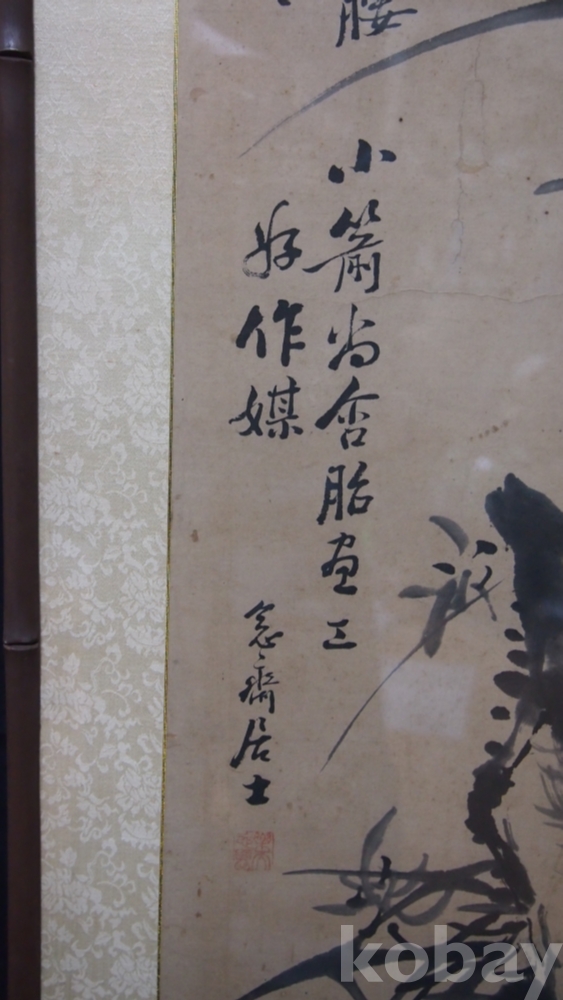 腰
小箭尚含胎画工
好作媒
念齋居士
kobay